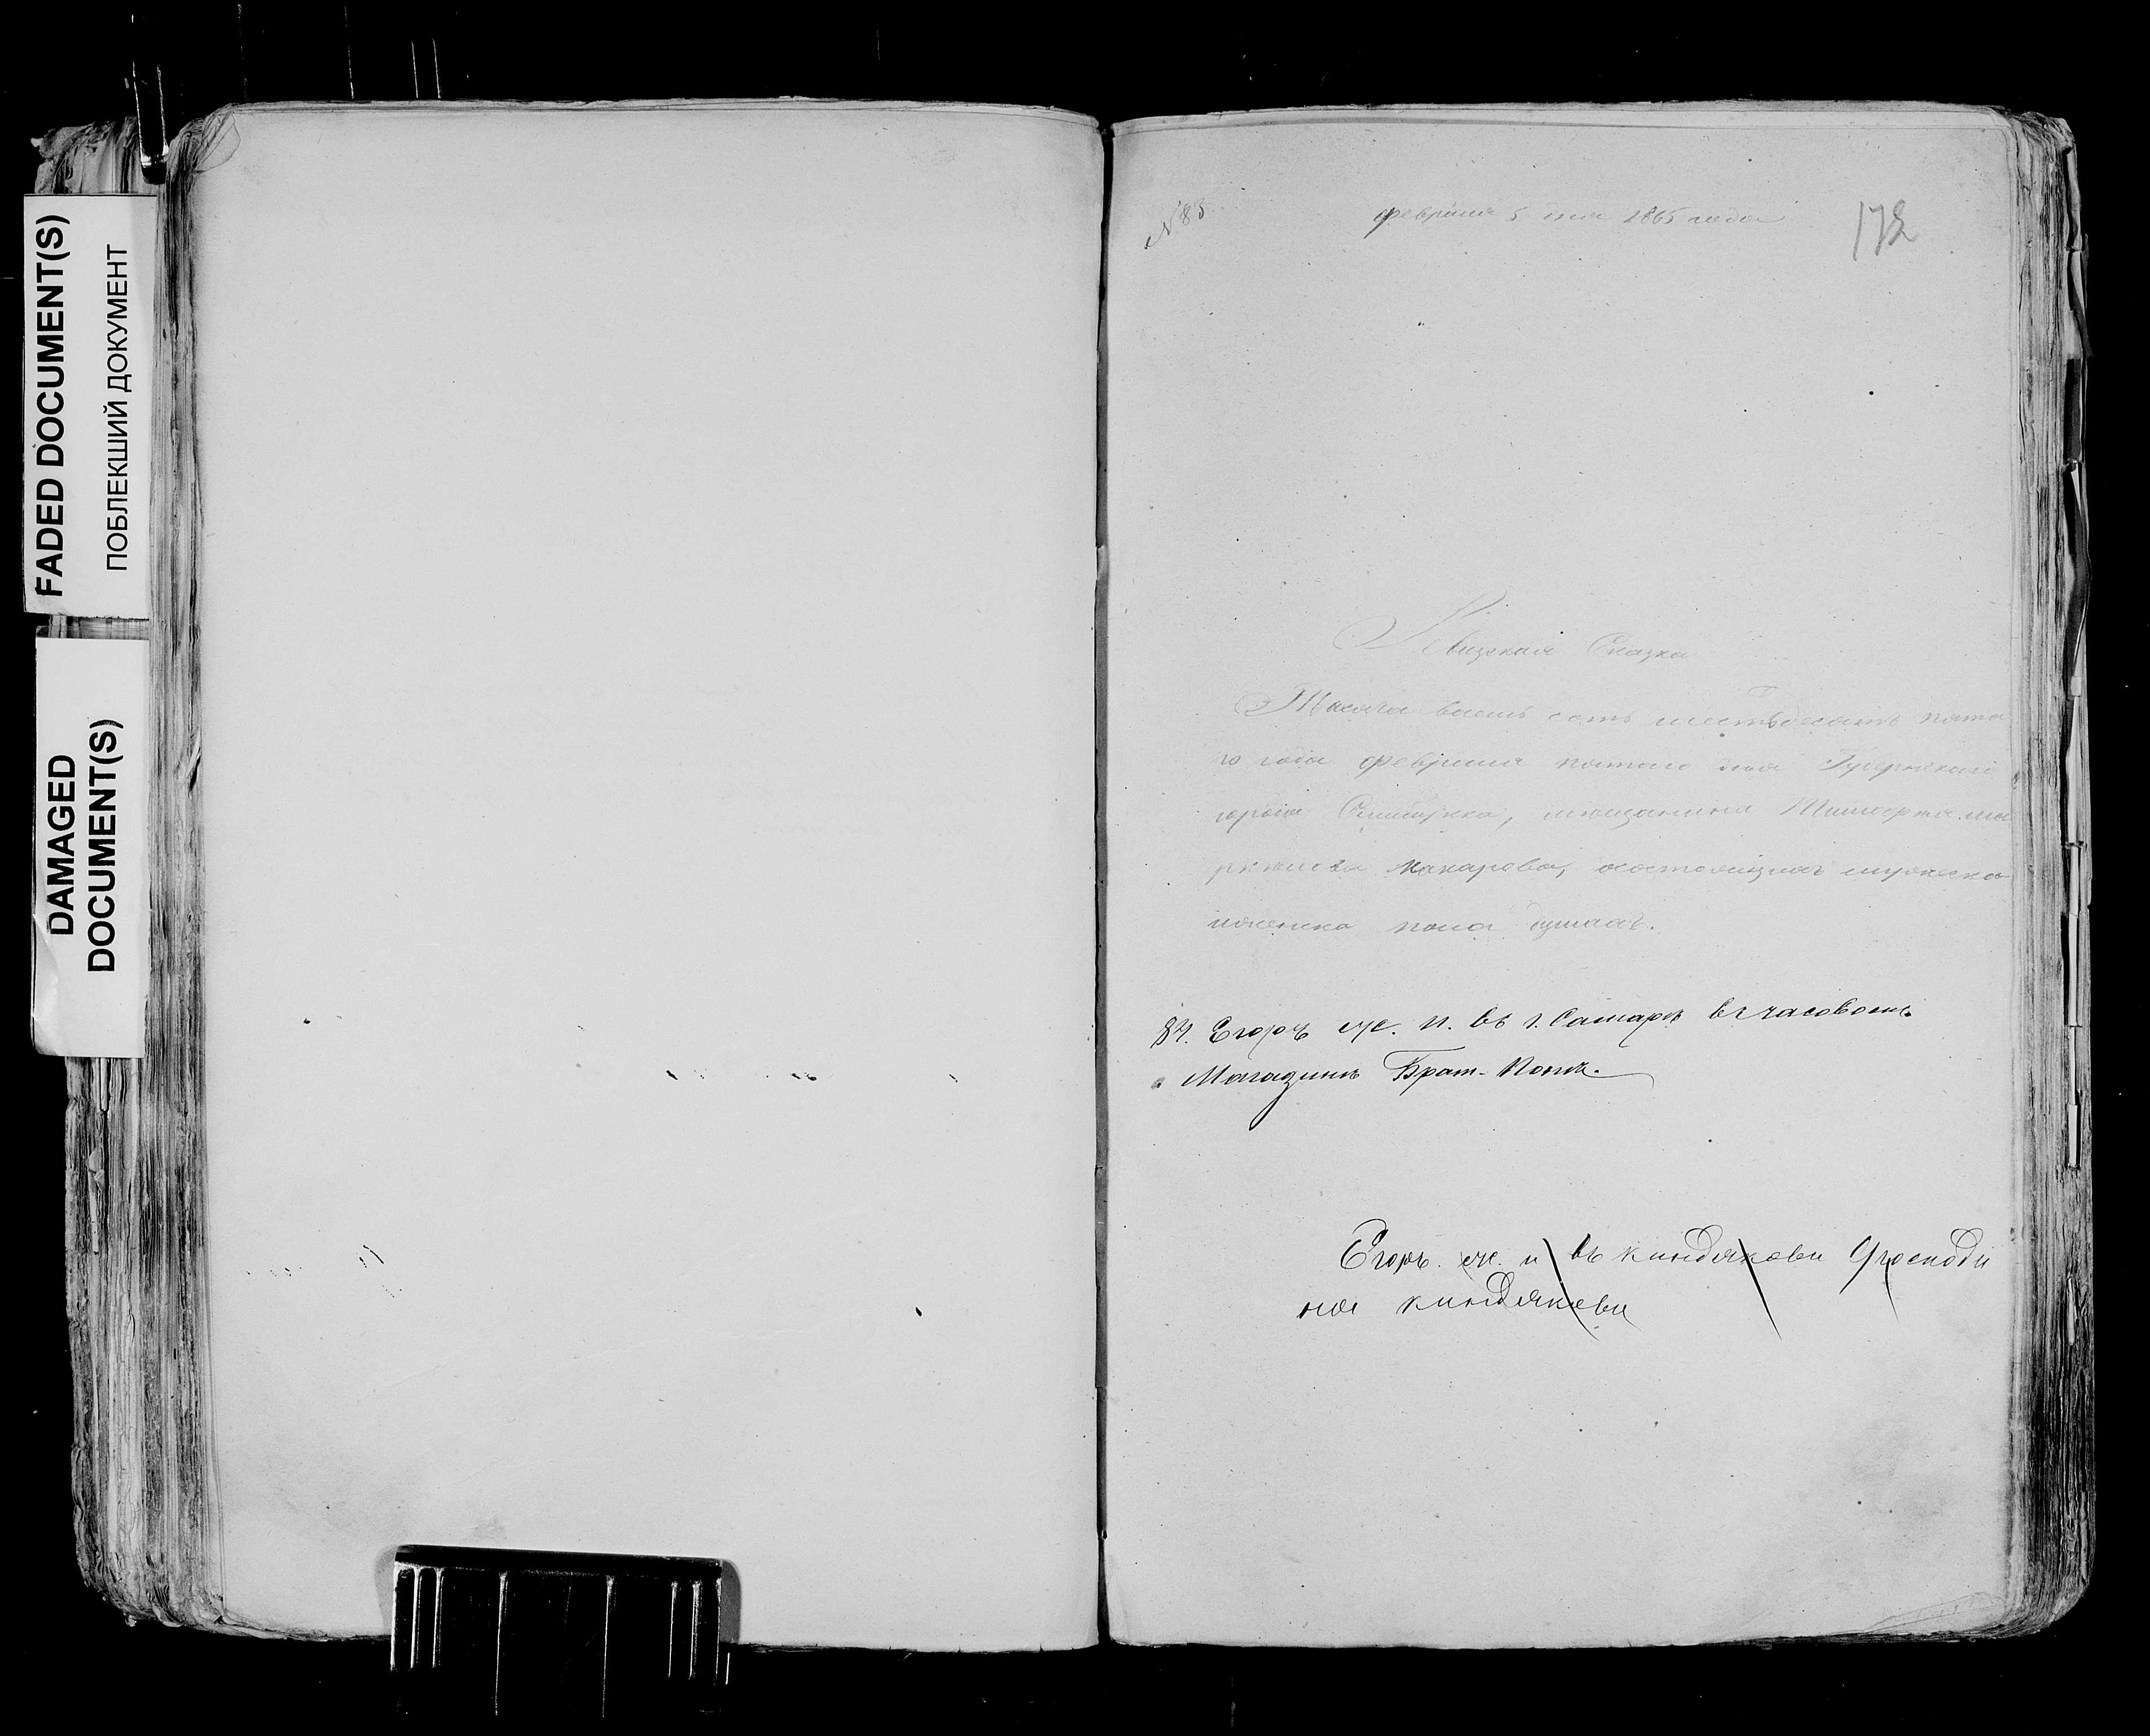 FADED DOCUMENT(S)
ПОБЛЕКШИЙ ДОКУМЕНТ
DAMAGED
DOCUMENT(S)
№ 83
февраля 5 дня 1865 года
172
Ревизская Сказка
Тысяча восемь сотъ шестьдесятъ пята
го года февраля пятаго дня Губернскаго
города Симбирска, мещанина
Макарова, состоящихъ мужеска
и женска пола душахъ.
84. Егоръ ж. въ г. Самаре въ часовомъ
Магазине Брат.
Егоръ ж. въ киндяковки У господи
на киндякова